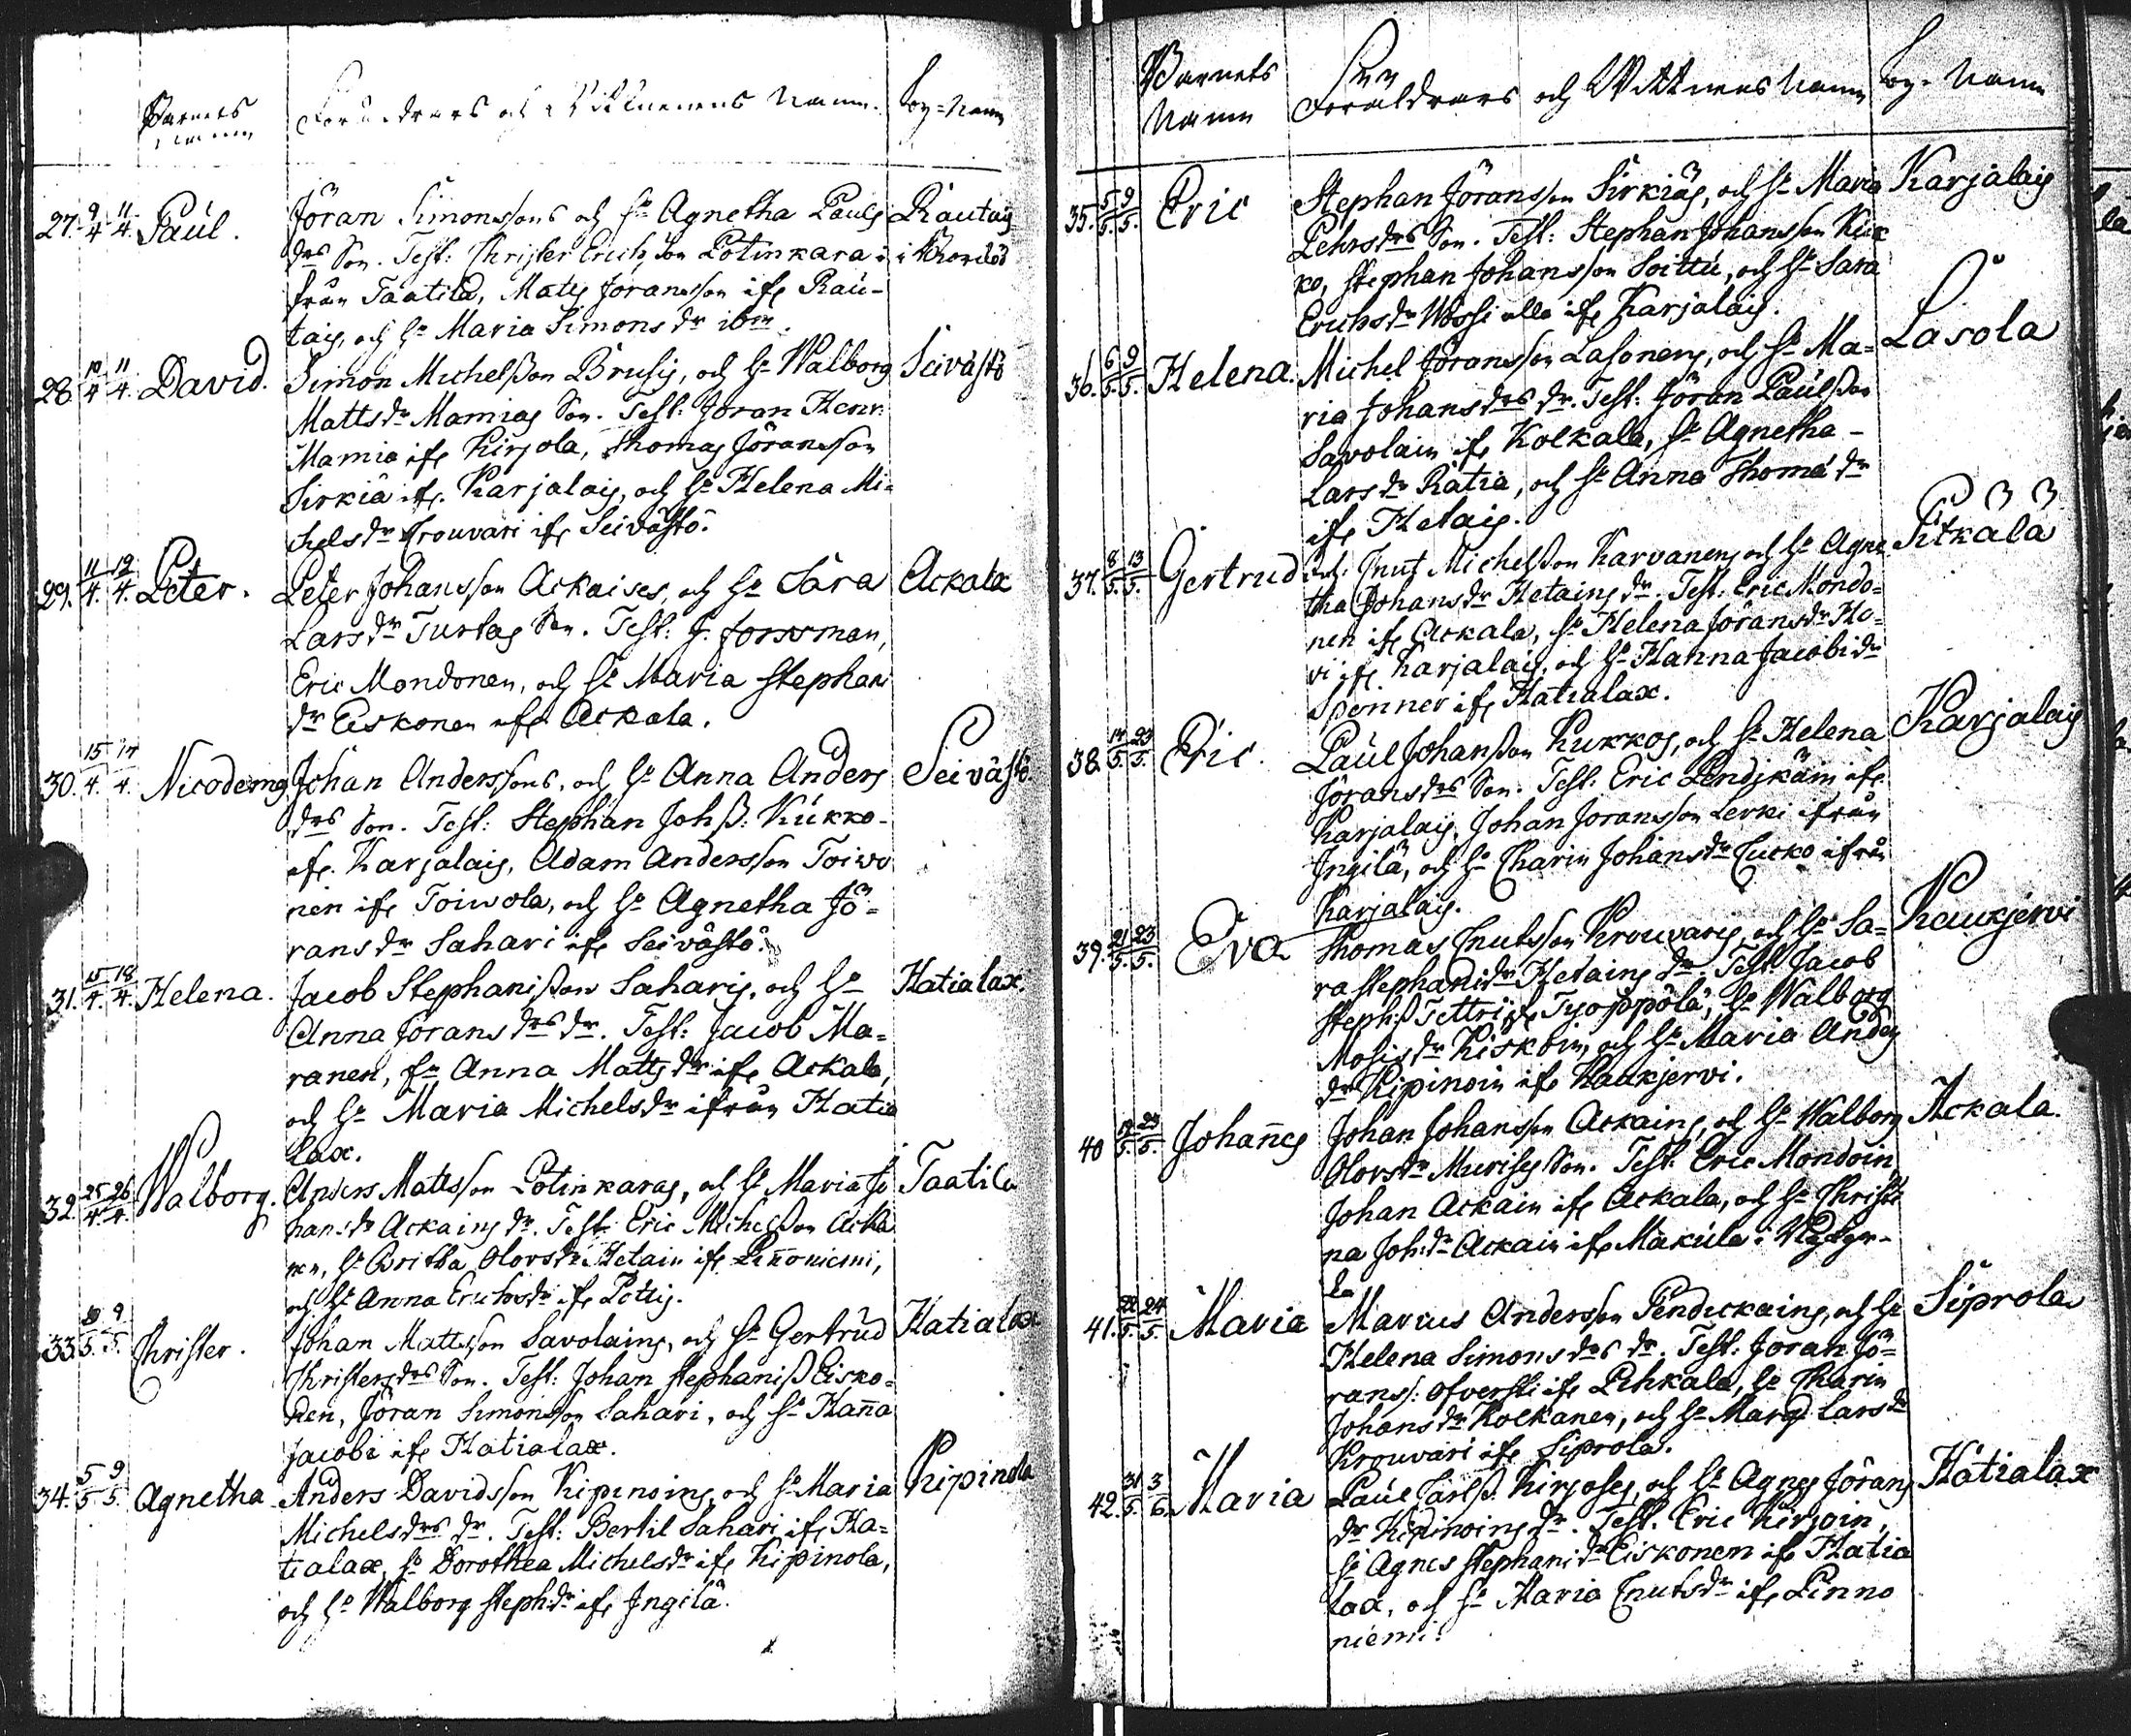 Barnets Föräldrars och Wittnenens Namn. by=Namn
Namn
27. 9/4 11/4. Paul. Jöran Simonssons och H:o Agnetha Pauls Rautais
drs Son. Test: Christer Erichsson Potinkara i i Nordlöö
från Taatila, Mats Joransson ifr Rau-
tais, och H:o Maria Simons dr ibm.
28 10/4 11/4. David. Simon Michelsson Brusis, och H:o Walborg Seivästö
Matts dr Mamias Son. Test: Joran Henr:
Mamia ifr Kirjola, Thomas Jöransson
Sirkiä ifr. Karjalais, och H:o Helena Mi=
chelsdr Crouvari ifr Seivästö.
29. 11/4. 12/4. Peter. Peter Johansson Ackaises, och H:o Sara Ackala
Larsdr Turtas Son. Test: J. forssman,
Eric Mondonen, och H:o Maria Stephani
dr Eiskonen ifr Ackala.
30. 15/4. 17/4. Nicodemus Johan Anderssons, och H:o Anna Anders Seivästö
drs Son. Test: Stephan Johss: Kukko-
ifr. Karjalais, Adam Andersson Toivo
nen ifr Toiwola, och H:o Agnetha Jö=
rans dr Sahari ifr Seivästö.
31. 15/4. 18/4. Helena. Jacob Stephanisson Saharis, och H:o Hatialax.
Anna Jorans drs dr. Test: Jacob Ma=
ranen, H:o Anna Matts dr ifr Ackala,
och H:o Maria Michelsdr ifrån Hatia
lax.
32. 25/4. 26/4. Walborg. Anders Mattsson Potinkaras, och H:o Maria Jo Taatila
hans dr Ackains dr. Test: Eric Michelsson Acka
nen, H:o Britha Olofsdr Hetain ifr Linnoniemi,
och H:o Anna Erichsdr ifr Pöttis.
33. 5. 9/5. Christer. Johan Mattsson Savolains, och H:o Gertrud Hatialax
Christersdrs Son. Test: Johan Stephaniss Eisko=
nen, Jöran Simonsson Sahari, och H:o Hanna
Jacobi ifr Hatialax.
34. 5/5 9/5. Agnetha Anders Davidsson Kipinoins, och H:o Maria Kipinola
Michelsdrs dr. Test: Bertil Sahari ifr Ha=
tialax, H:o Dorothea Michelsdr ifr Kipinola,
och H:o Walborg Steph:dr ifr Ingilä.
Barnets Föräldrars och Wittnens Namn by=Namn
Namn
35. 5/5. 9/5. Eric Stephan Jöransson Sirkiäs, och H:o Maria Karjalais
Pehrsdrs Son. Test: Stephan Johansson Kuk
ko, Stephan Johansson Soittu, och H:o Sara
Erichsdr Wossi alla ifr Karjalais.
36. 6/5. 9/5. Helena. Michel Jöransson Lasonens, och H:o Ma= Lasola
ria Johansdrs dr. Test: Jöran Paulsson
Savolain ifr Kolkala, H:o Agnetha
Larsdr Ratia, och H:o Anna Thomæ dr
ifr Hetais.
37. 8/5. 13/5. Gertrud Cnut Michelsson Karvanens och H:o Agne Pitkälä
tha Johansdr Hetains dr. Test: Eric Mondo=
nen ifr Ackala, H:o Helena Jöransdr Ho=
vi ifr Karjalais, och H:o Hanna Jacobi dr
Spenner ifr Hatialax.
38. 14/5. 23/5. Eric. Paul Johansson Kukkos, och H:o Helena Karjalais
Jöransdrs Son. Test: Eric Pendikäin ifr
Karjalais, Johan Joransson Lerki ifrån
Ingilä, och H:o Charin Johansdr Cucko ifrån
Karjalais.
39. 21/5. 23/5. Eva Thomas Cnutsson Krouvaris och H:o Sa= Kaukjervi
ra Stephanidr Hetains dr. Test: Jacob
Steph:ss Tettri ifr Työppölä, H:o Walborg
Mosisdr Kiskoin, och H:o Maria Anders
dr Kipinoin ifr Kaukjervi.
40 19/5. 23/5. Johannes Johan Johansson Ackains, och H:o Walborg Ackala.
Olofsdr Murises Son. Test: Eric Mondoin,
Johan Ackain ifr Ackala, och H:o Christi
na Joh:dr Ackain ifr Makula i
la
41. 22/5. 24/5. Maria Marcus Andersson Pendickains, och H:o Siprola
Helena Simonsdrs dr. Test: Joran Jö=
rans: Ofversti ifr Pihkala, H:o Charin
Johansdr Kolkanen, och H:o Marg: Larsdr
Krouvari ifr Siprola.
42. 31/5. 3/6. Maria Paul Carlss. Kirjoses, och H:o Agnes Jörans Hatialax
dr Kipinoins dr. Test: Eric Kirjoin,
H:o Agnes Stephanidr Eiskonen ifr Hatia
lax, och H:o Maria Cnutsdr ifr Linno
niemi.